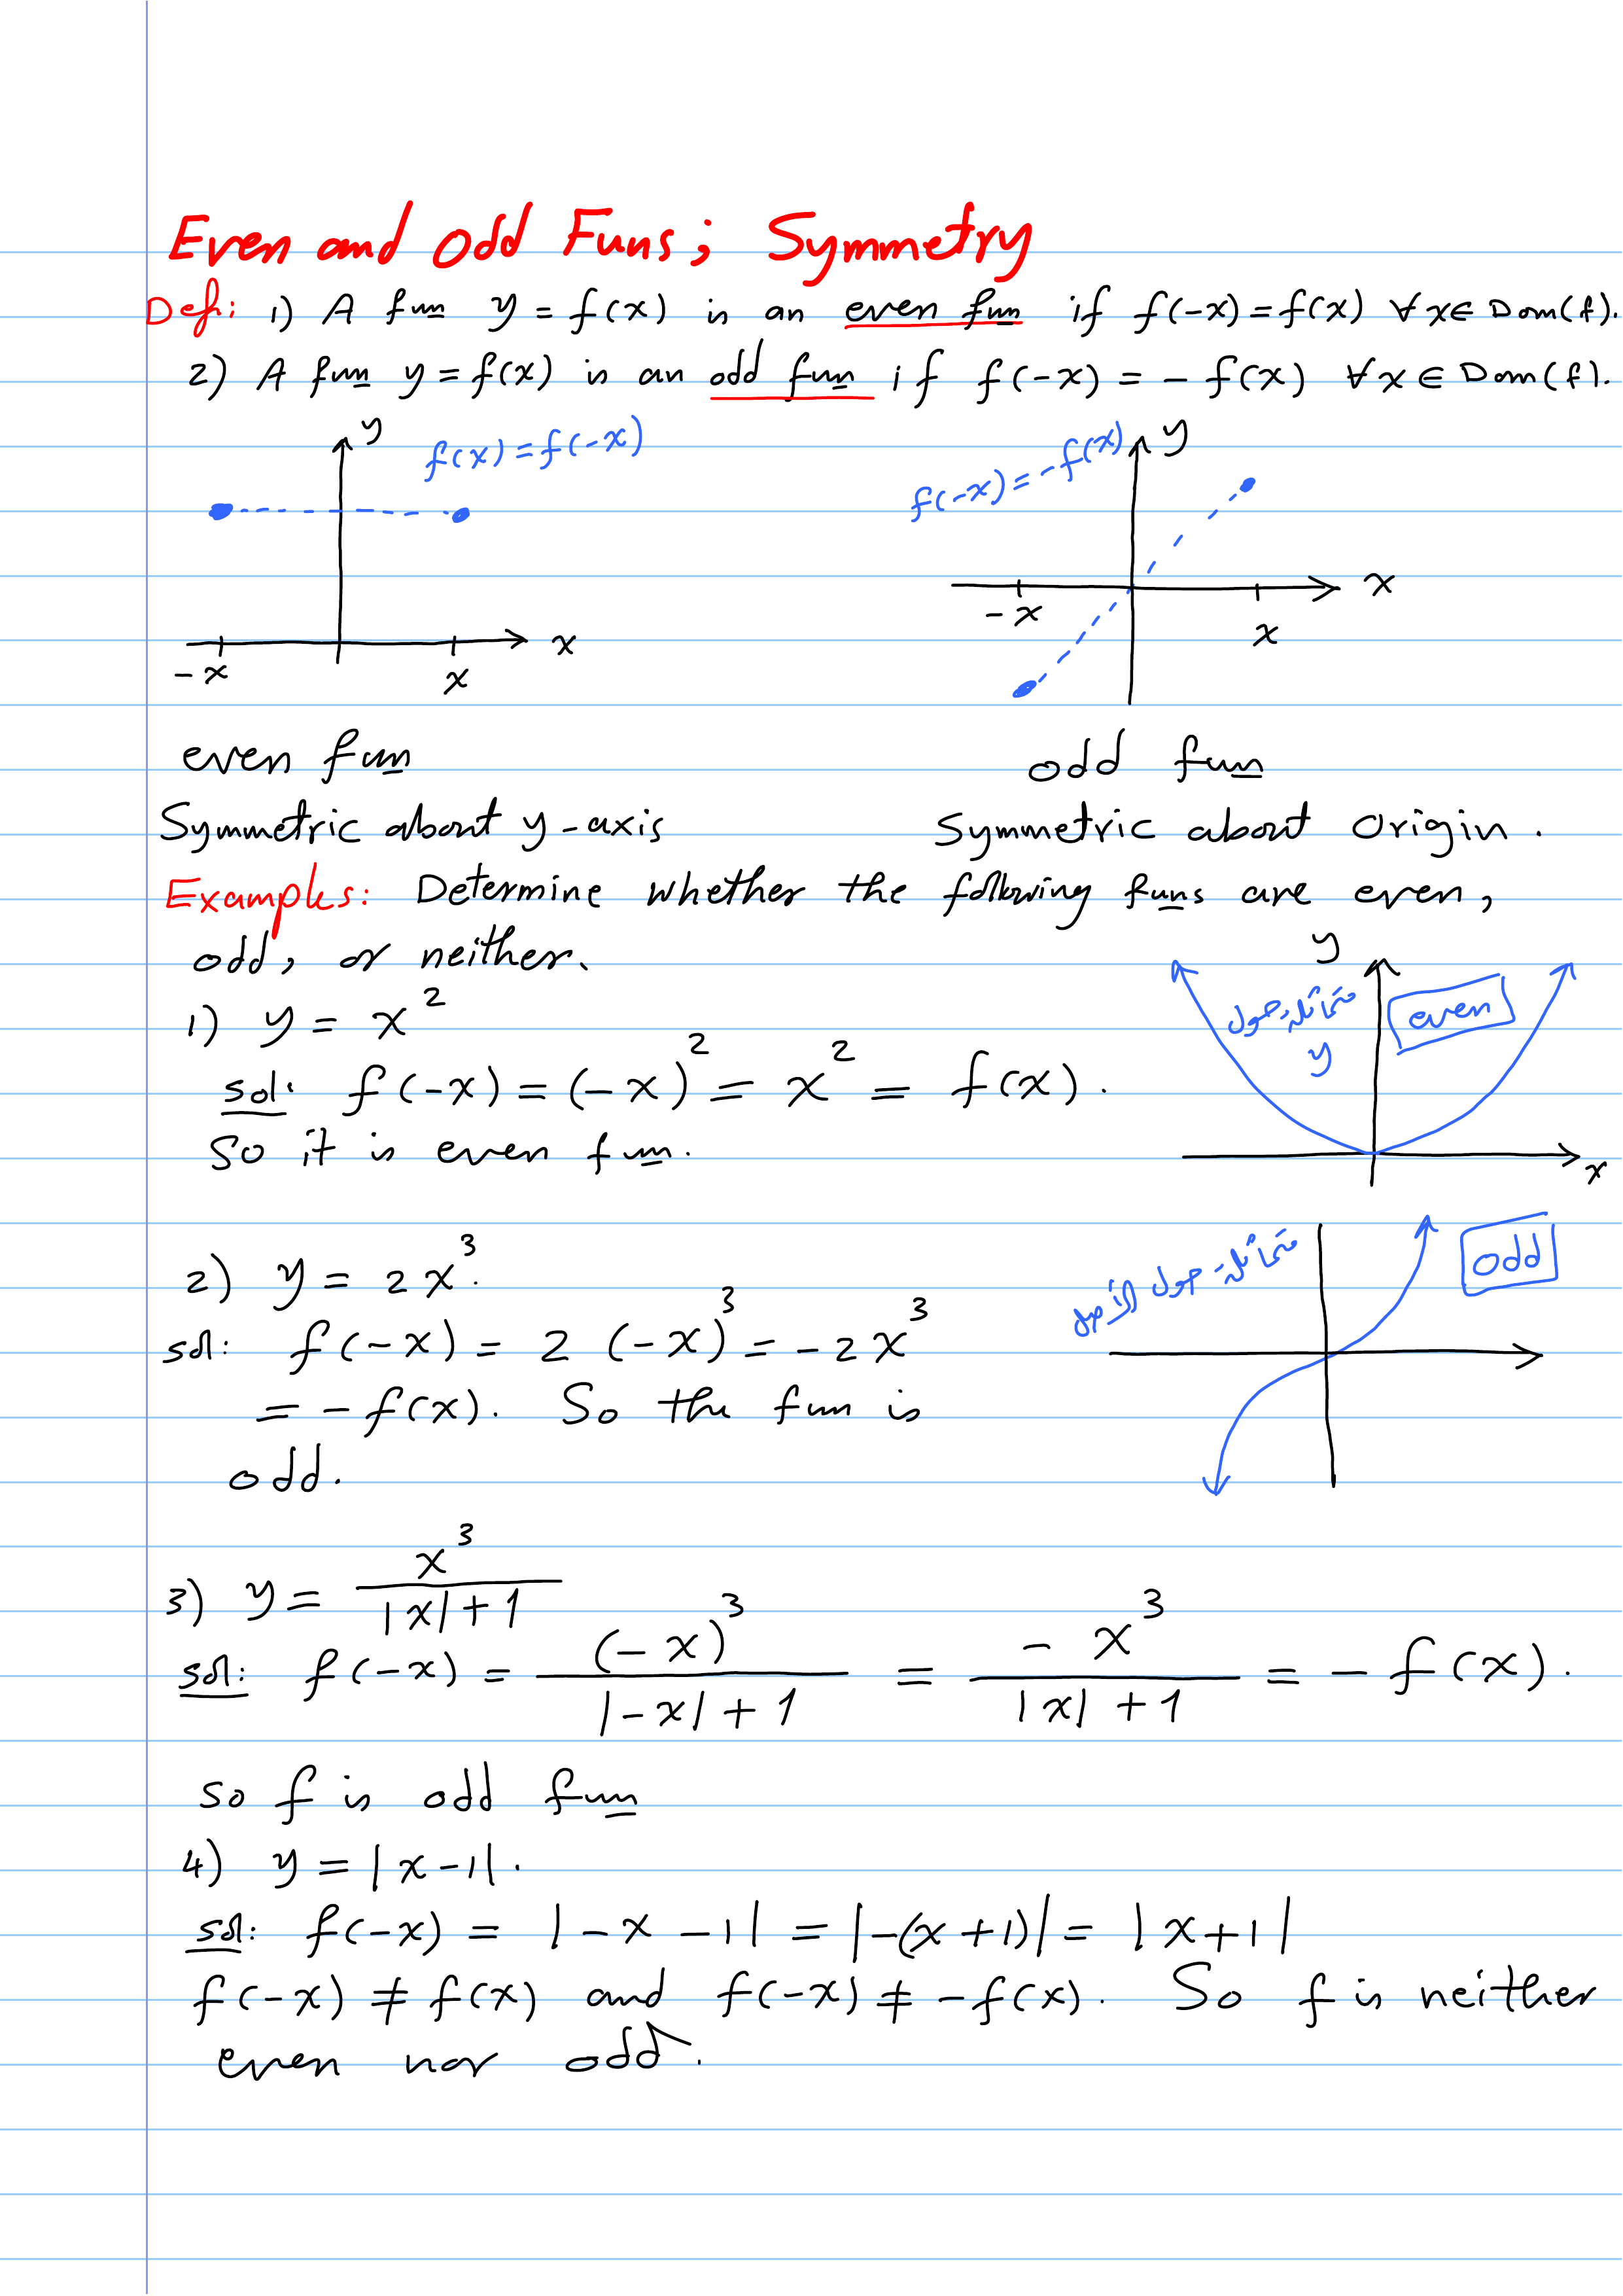 Even and Odd Funs; Symmetry
Def: 1) A fun y = f(x) is an even fun if f(-x) = f(x) ∀ x ∈ Dom(f).
2) A fun y = f(x) is an odd fun if f(-x) = - f(x) ∀ x ∈ Dom(f).
y
f(x) = f(-x)
-x
x
x
f(-x) = -f(x)
y
-x
x
x
even fun
odd fun
Symmetric about y-axis
Symmetric about origin.
Examples: Determine whether the following funs are even,
odd, or neither.
1) y = x²
sol: f(-x) = (-x)² = x² = f(x).
So it is even fun.
y
متماثلة حول
y
even
x
2) y = 2x³.
sol: f(-x) = 2 (-x)³ = -2x³
= - f(x). So the fun is
odd.
متماثلة حول الأصل
odd
3) y = x³ / (|x| + 1)
sol: f(-x) = (-x)³ / (|-x| + 1) = - x³ / (|x| + 1) = - f(x).
so f is odd fun
4) y = |x-1|.
sol: f(-x) = |-x-1| = |-(x+1)| = |x+1|
f(-x) ≠ f(x) and f(-x) ≠ -f(x). So f is neither
even nor odd.